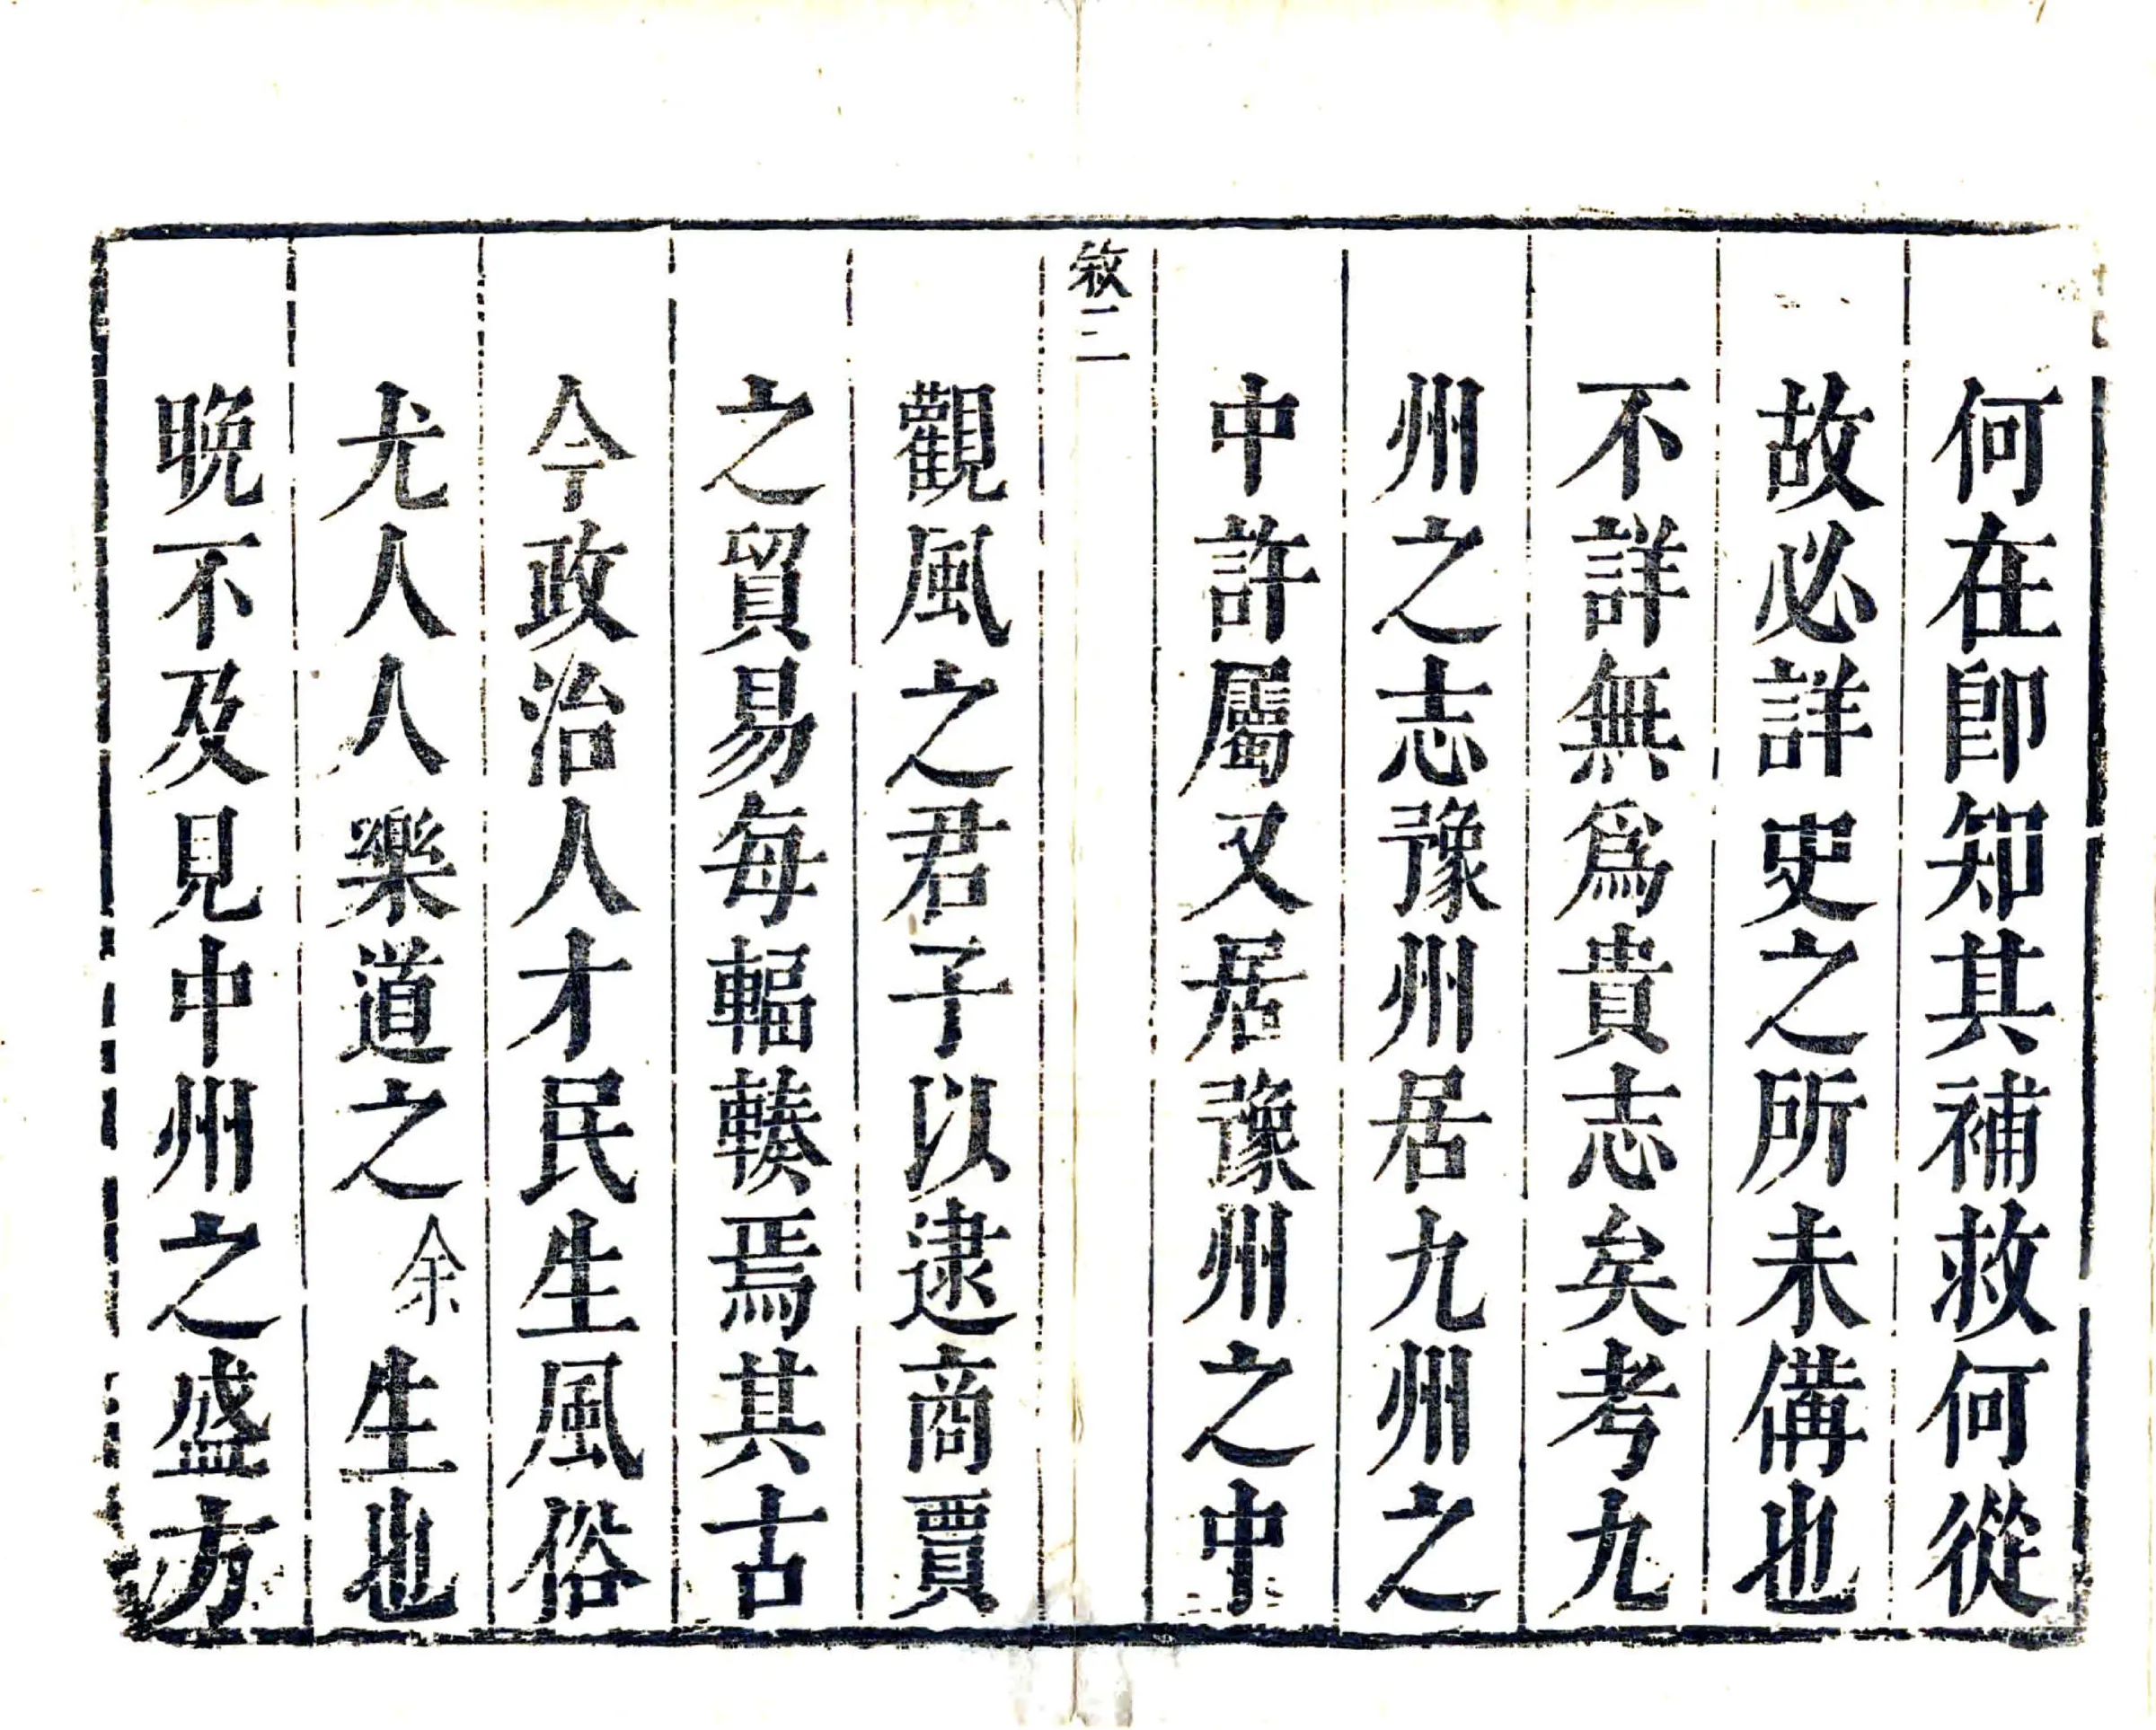 何在卽知其補救何從
故必詳史之所未備也
不詳無爲貴志矣考九
州之志豫州居九州之
中許屬又居豫州之中
敘二
觀風之君子以逮商賈
之貿易每輻輳焉其古
今政治人才民生風俗
尤人人樂道之余生也
晩不及見中州之盛方